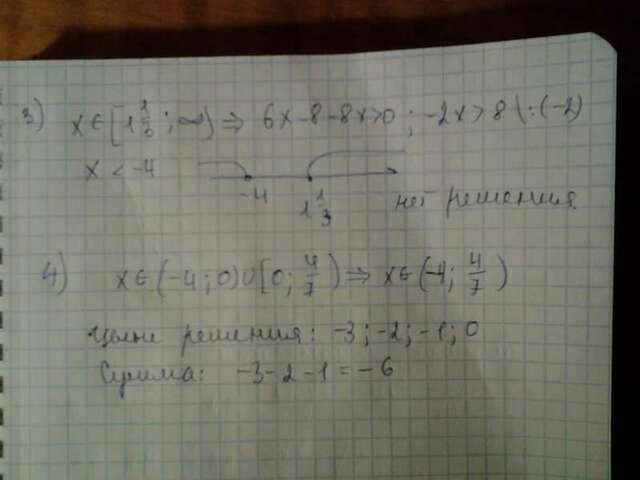 3) x ∈ [1 1/3 ; ∞) ⇒ 6x-8-8x>0 ; -2x>8 |:(-2)
x < -4
-4
1 1/3
нет решения
4) x ∈ (-4 ; 0) ∪ [0 ; 4/7) ⇒ x ∈ (-4 ; 4/7)
Целые решения: -3 ; -2 ; -1 ; 0
Сумма: -3-2-1 = -6